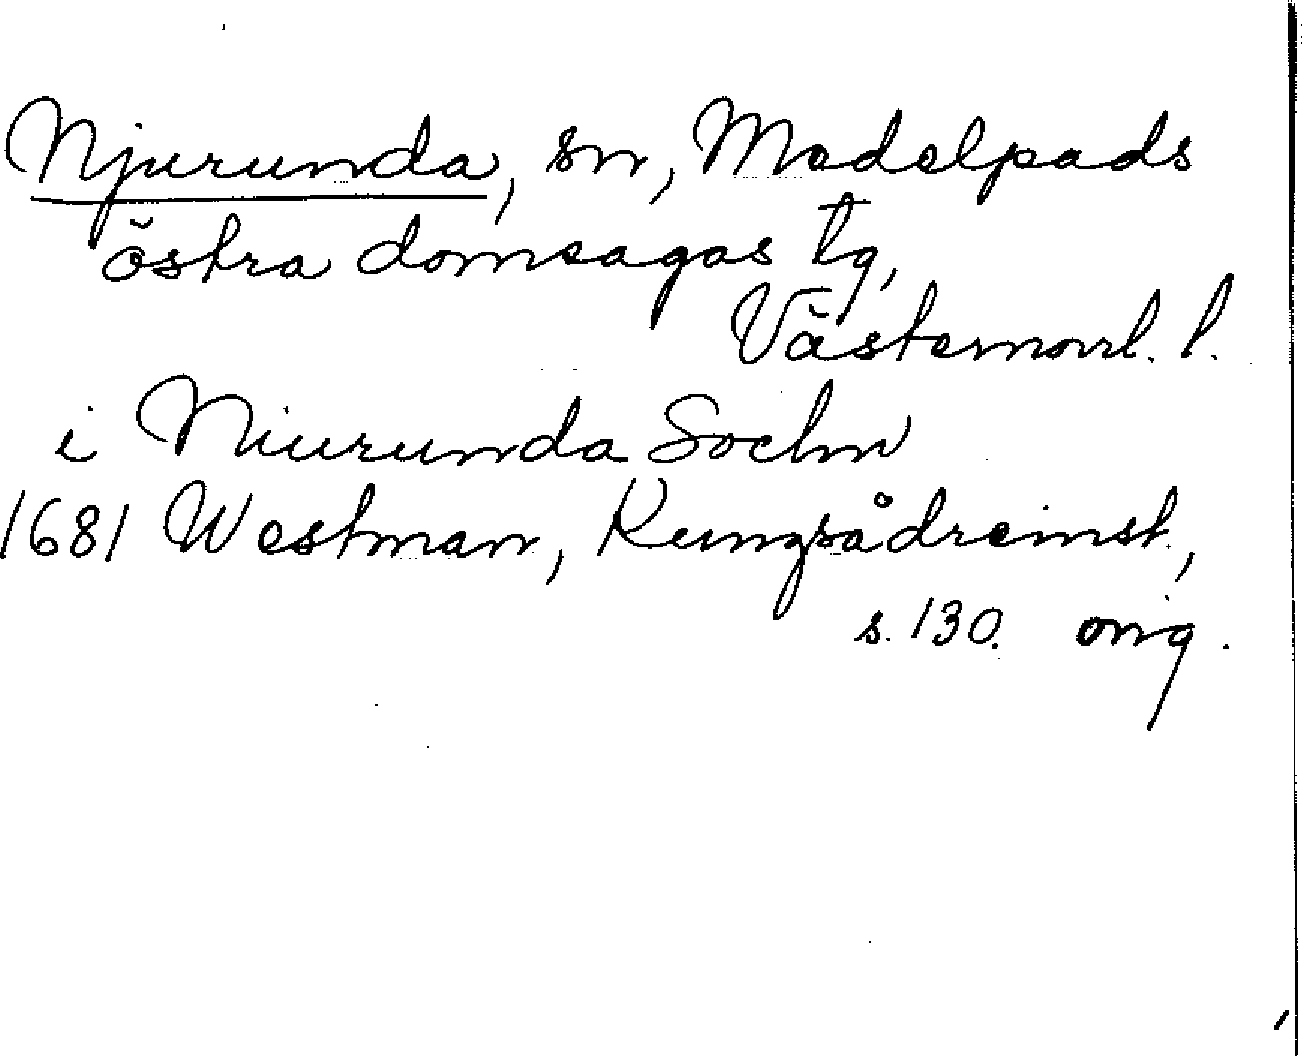 Njurunda, sn, Medelpads
östra domsagas tg,
Västernorrl. l.
i Niurunda Sochn
1681 Westman, Kungsådreinst.,
s. 130. orig.